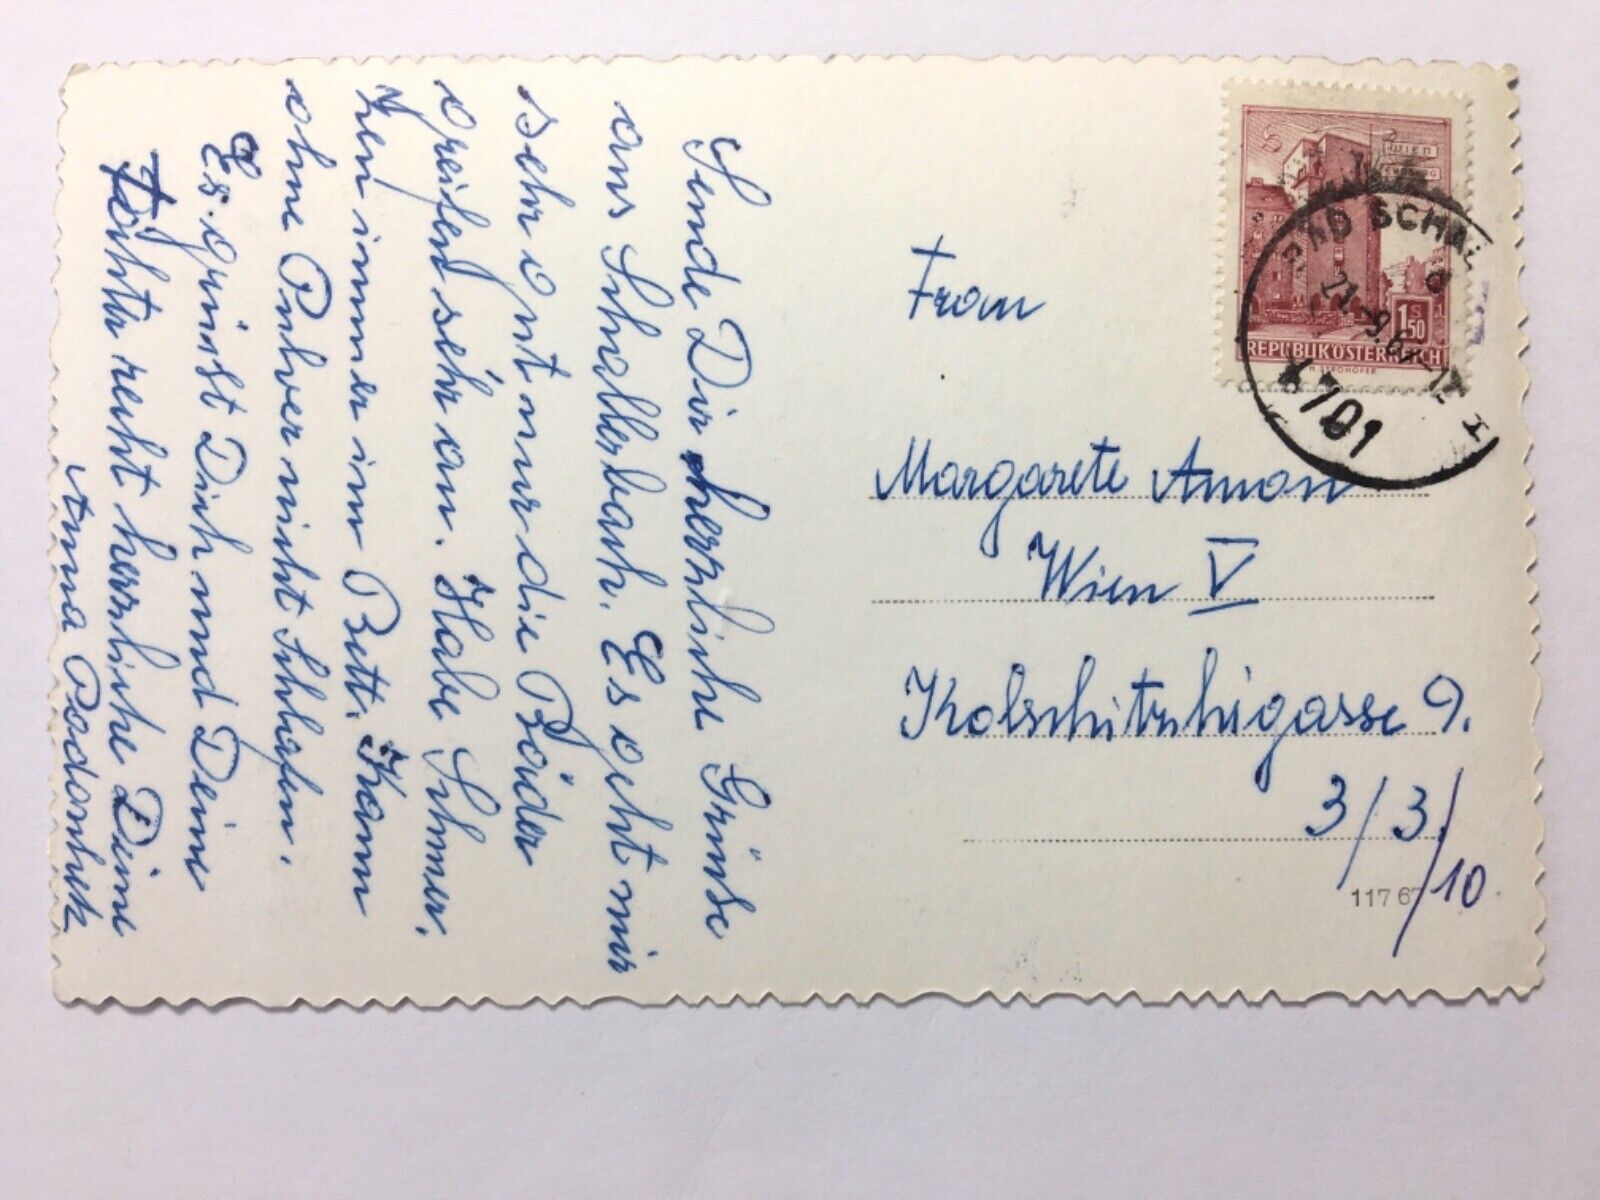 Sende Dir herzliche Grüsse
aus Schallerbach. Es geht mir
sehr gut nur die Bäder
greifen sehr an. Habe Schmer,
zen immer im Bett. Kann
ohne Pulver nicht Schlafen.
Es grüsst Dich und Deine
Töchter recht herzliche Deine
Anna
Frau
Margarete Amon
Wien V
Kolschitzkigasse 9.
3/3/10
WIEN
1 S 50
REPUBLIK ÖSTERREICH
BAD SCHAL
21.-9.6
101
117 67